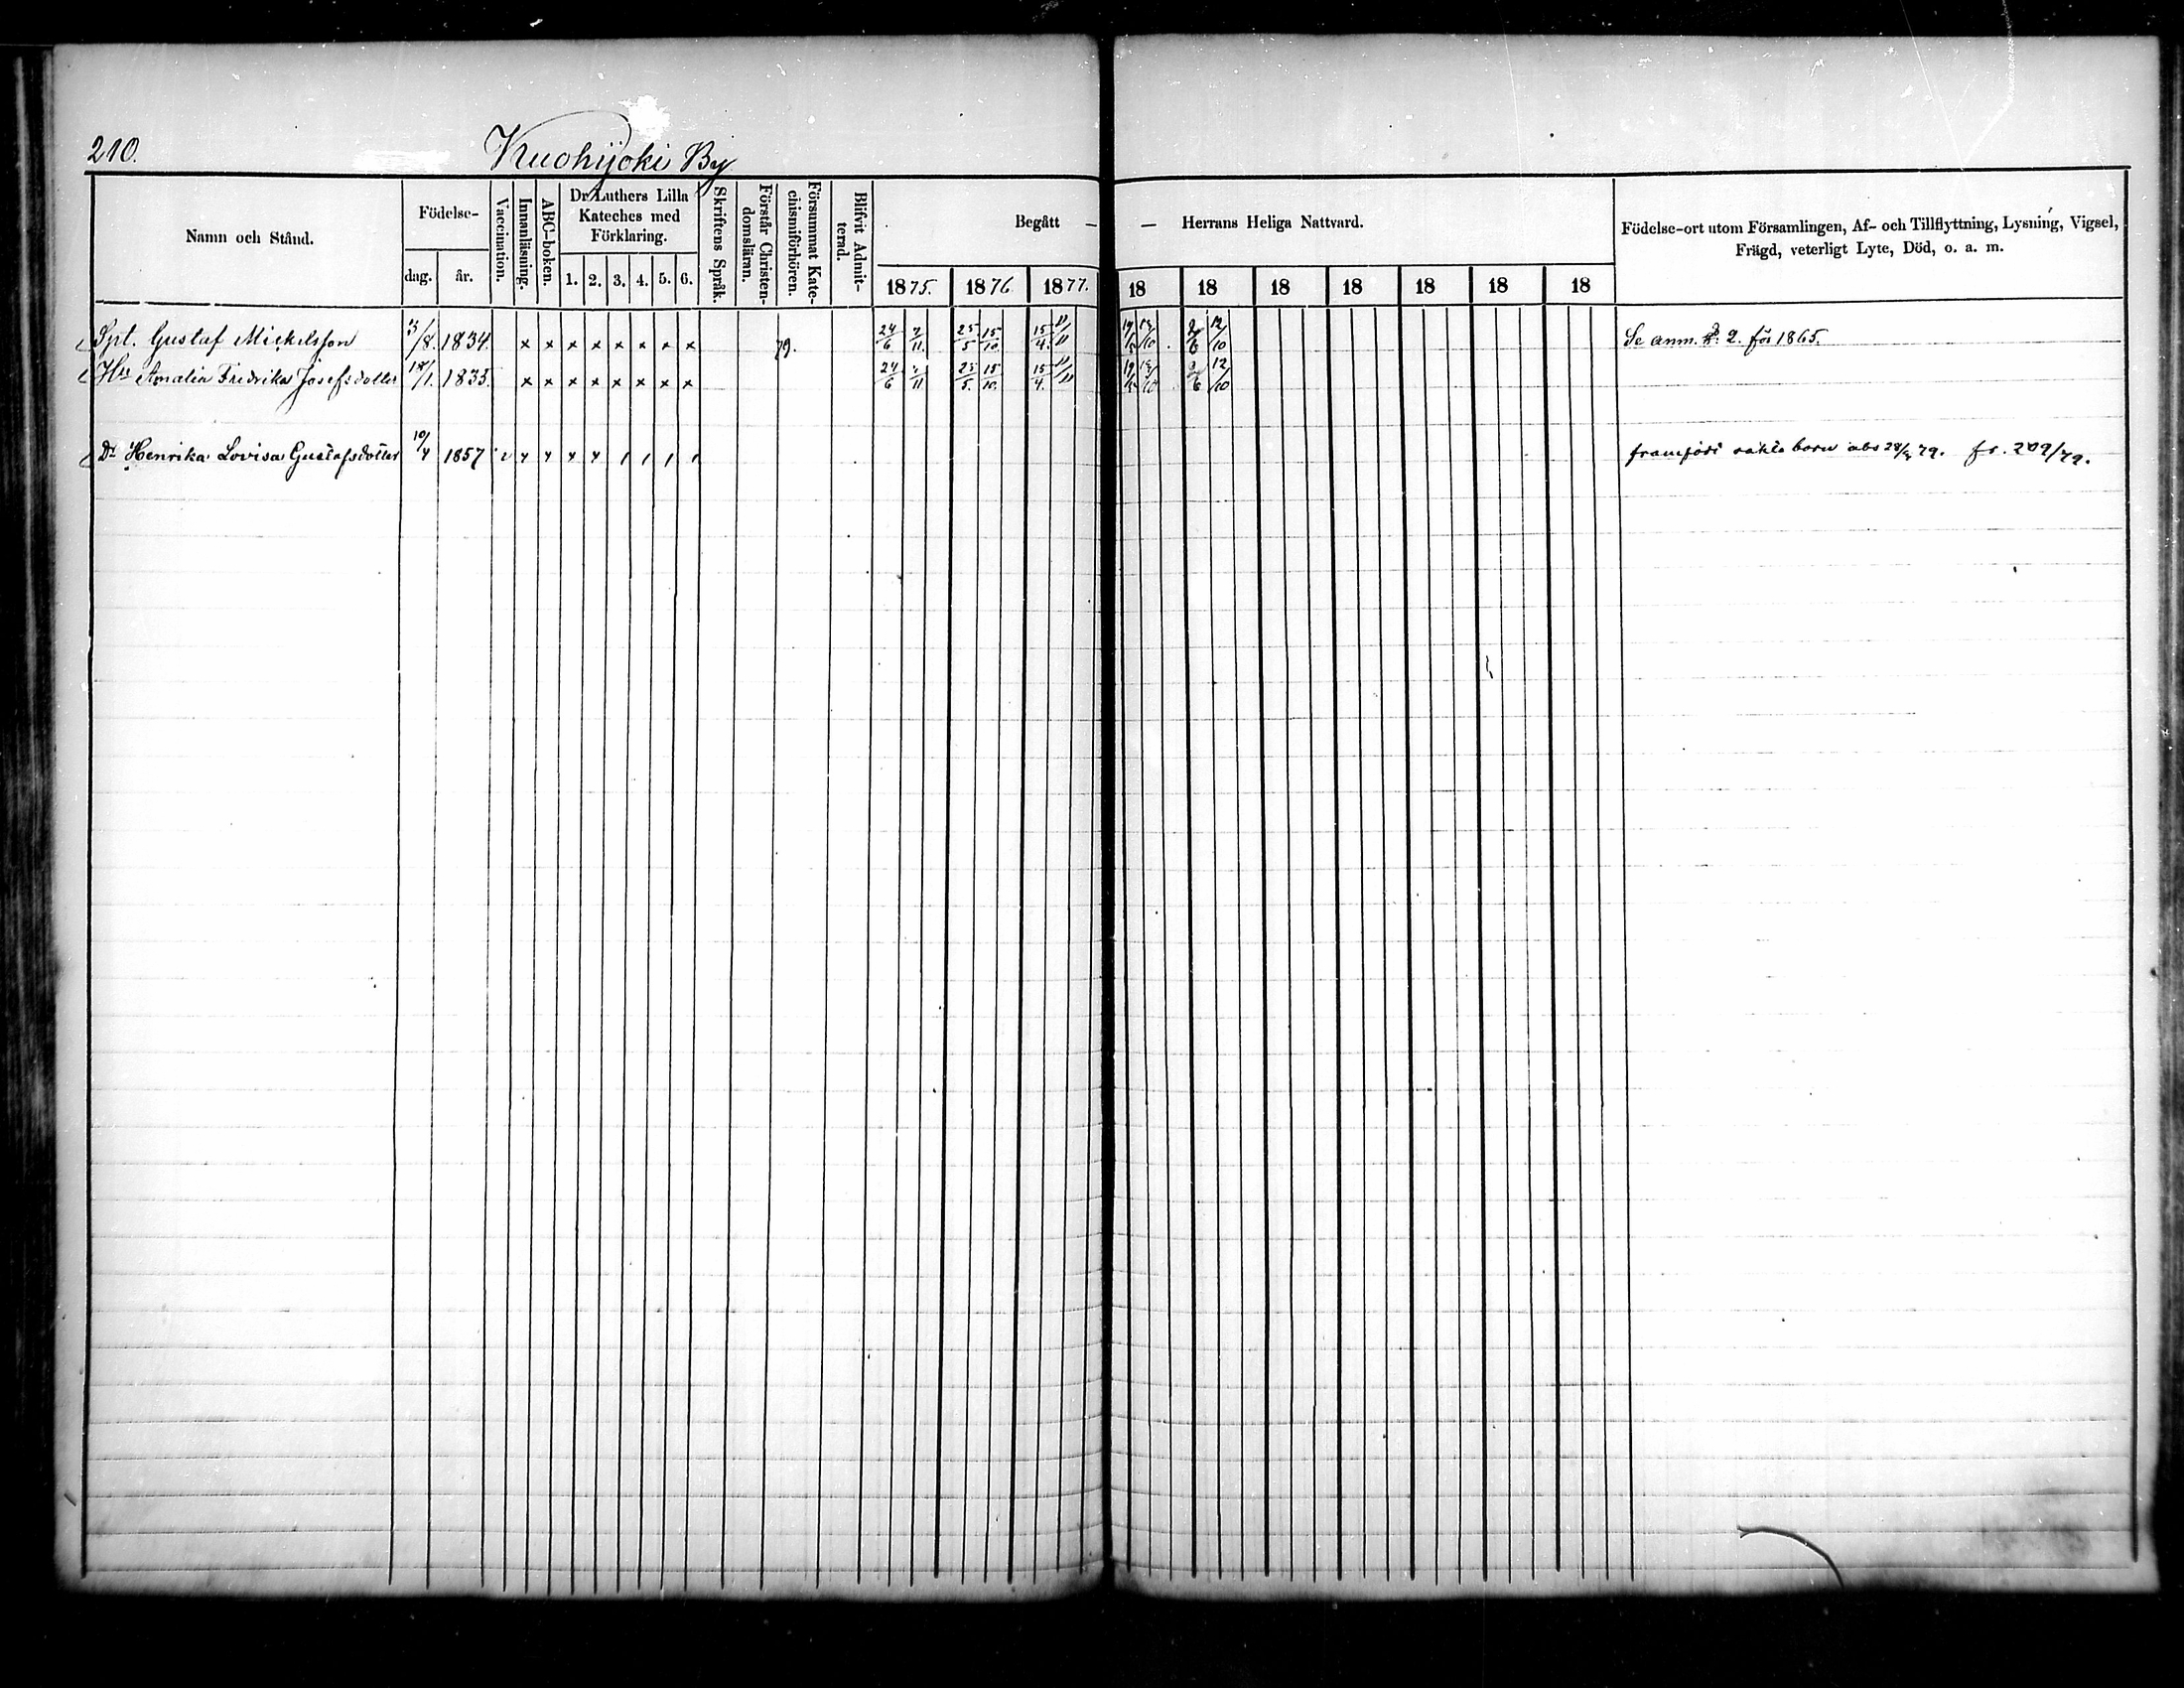 210. Kuohijoki By
Namn och Stånd. Födelse- dag. år. Vaccination. Innanläsning. ABC-boken. Dr Luthers Lilla Kateches med Förklaring. 1. 2. 3. 4. 5. 6. Skriftens Språk. Förstår Christendomsläran. Försummat Katechismiförhören. Blifvit Admitterad. Begått — — Herrans Heliga Nattvard. Födelse-ort utom Församlingen, Af- och Tillflyttning, Lysning, Vigsel,
Frägd, veterligt Lyte, Död, o. a. m.
1875. 1876. 1877. 18 18 18 18 18 18 18
Spt. Gustaf Mickelsson 3/8. 1834. x x x x x x x x 79. 24/6 7/11 25/5 15/10. 15/4. 11/11 2/6 12/10 Se anm. 2. för 1865.
Hu Amalia Fredrika Josefsdotter 1835. x x x x x x x x 24/6 7/11 25/5. 15/10. 15/4. 11/11 2/6 12/10
Dr Henrika Lovisa Gustafsdotter 10/4 1857 v x x x x / / / / abs 79. fr. 209/79.